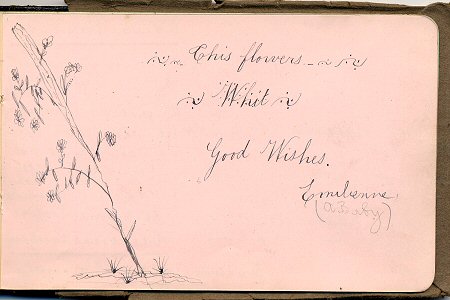 This flowers
Whit
Good Wishes.
Emilienne
(a Baby)